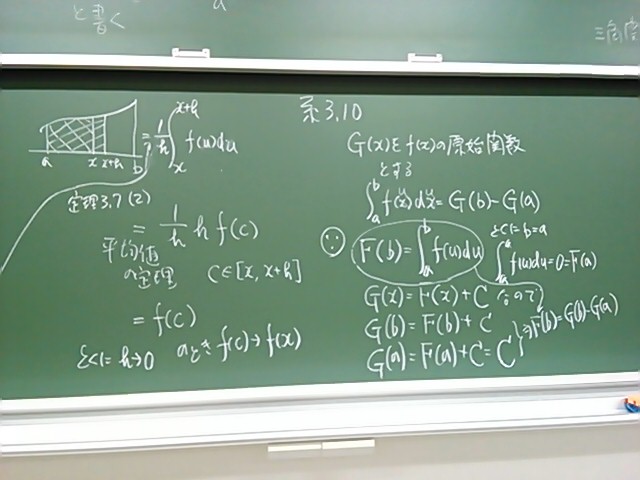 と書く
a
三角

a x x+h b
= 1/h ∫_x^{x+h} f(u)du
定理3.7(2)
= 1/h h f(c)
平均値
の定理 c∈[x, x+h]
= f(c)
とくに h→0 のとき f(c)→f(x)
系3.10
G(x)をf(x)の原始関数
とする
∫_a^b f(x)dx = G(b)-G(a)
F(b)=∫_a^b f(u)du
とくに b=a
∫_a^a f(u)du=0=F(a)
G(x)=F(x)+C なので
G(b)=F(b)+C
G(a)=F(a)+C=C
⇒F(b)=G(b)-G(a)